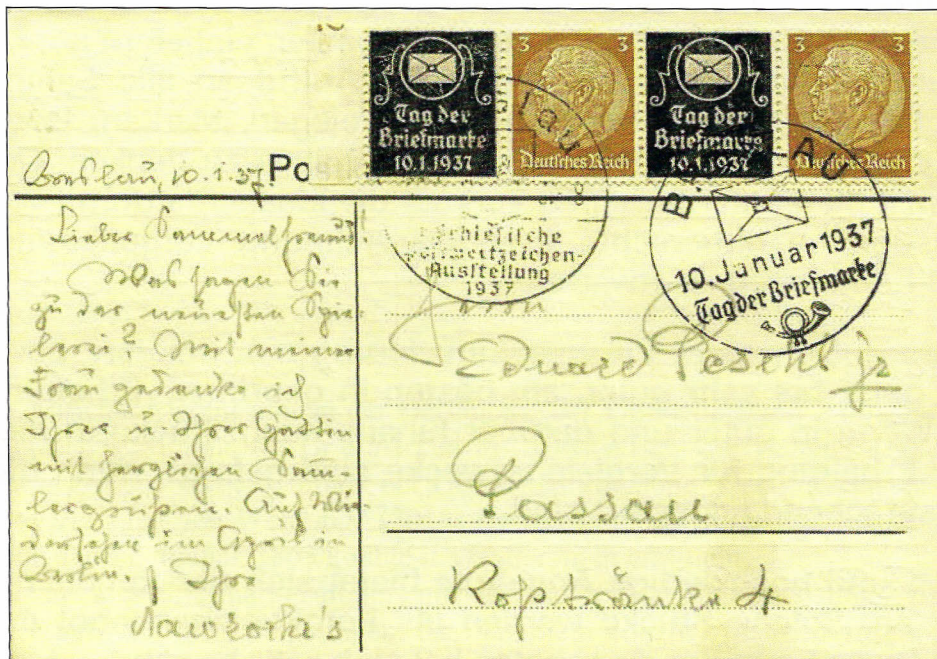 3 3 3 3
Tag der
Briefmarke
10.1.1937
Deutsches Reich
Tag der
Briefmarke
10.1.1937
Deutsches Reich
Breslau, 10.1.37. Po
lau
Schlesische
Postwertzeichen-
Ausstellung
1937
BRESLAU
10. Januar 1937
Tag der Briefmarke
Lieber Sammelfreund!
Was sagen Sie
zu der neuesten Spie-
lerei? Mit meiner
Frau gedenke ich
Ihrer u. Ihrer Gattin
mit herzlichen Samm-
lergrüßen. Auf Wie-
dersehen im April in
Berlin. Ihre
Herrn
Eduard Peschl jr
Passau
Roßtränke 4